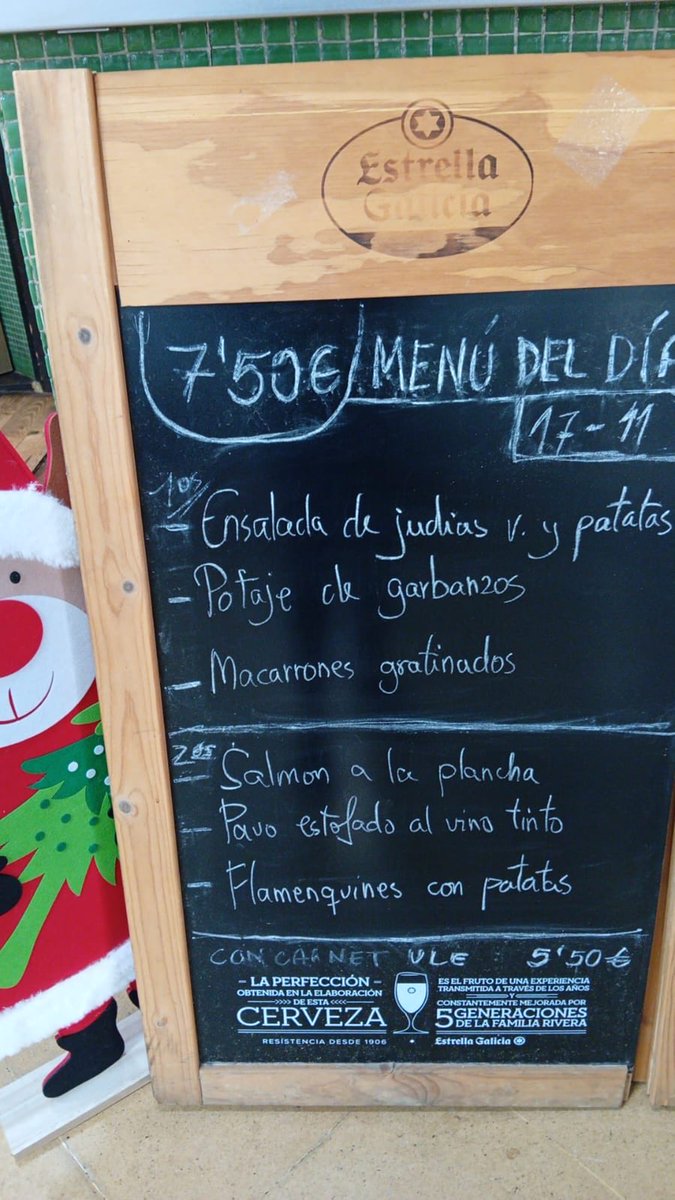 Estrella
Galicia
7'50€ MENÚ DEL DÍA
17-11
1os
- Ensalada de judias v. y patatas
- Potaje de garbanzos
- Macarrones gratinados
2os
- Salmon a la plancha
- Pavo estofado al vino tinto
- Flamenquines con patatas
CON CARNET ULE : 5'50€
- LA PERFECCIÓN -
OBTENIDA EN LA ELABORACIÓN
>>>> DE ESTA <<<<
CERVEZA
RESISTENCIA DESDE 1906
ES EL FRUTO DE UNA EXPERIENCIA
TRANSMITIDA A TRAVÉS DE LOS AÑOS
Y
CONSTANTEMENTE MEJORADA POR
5 GENERACIONES
DE LA FAMILIA RIVERA
Estrella Galicia